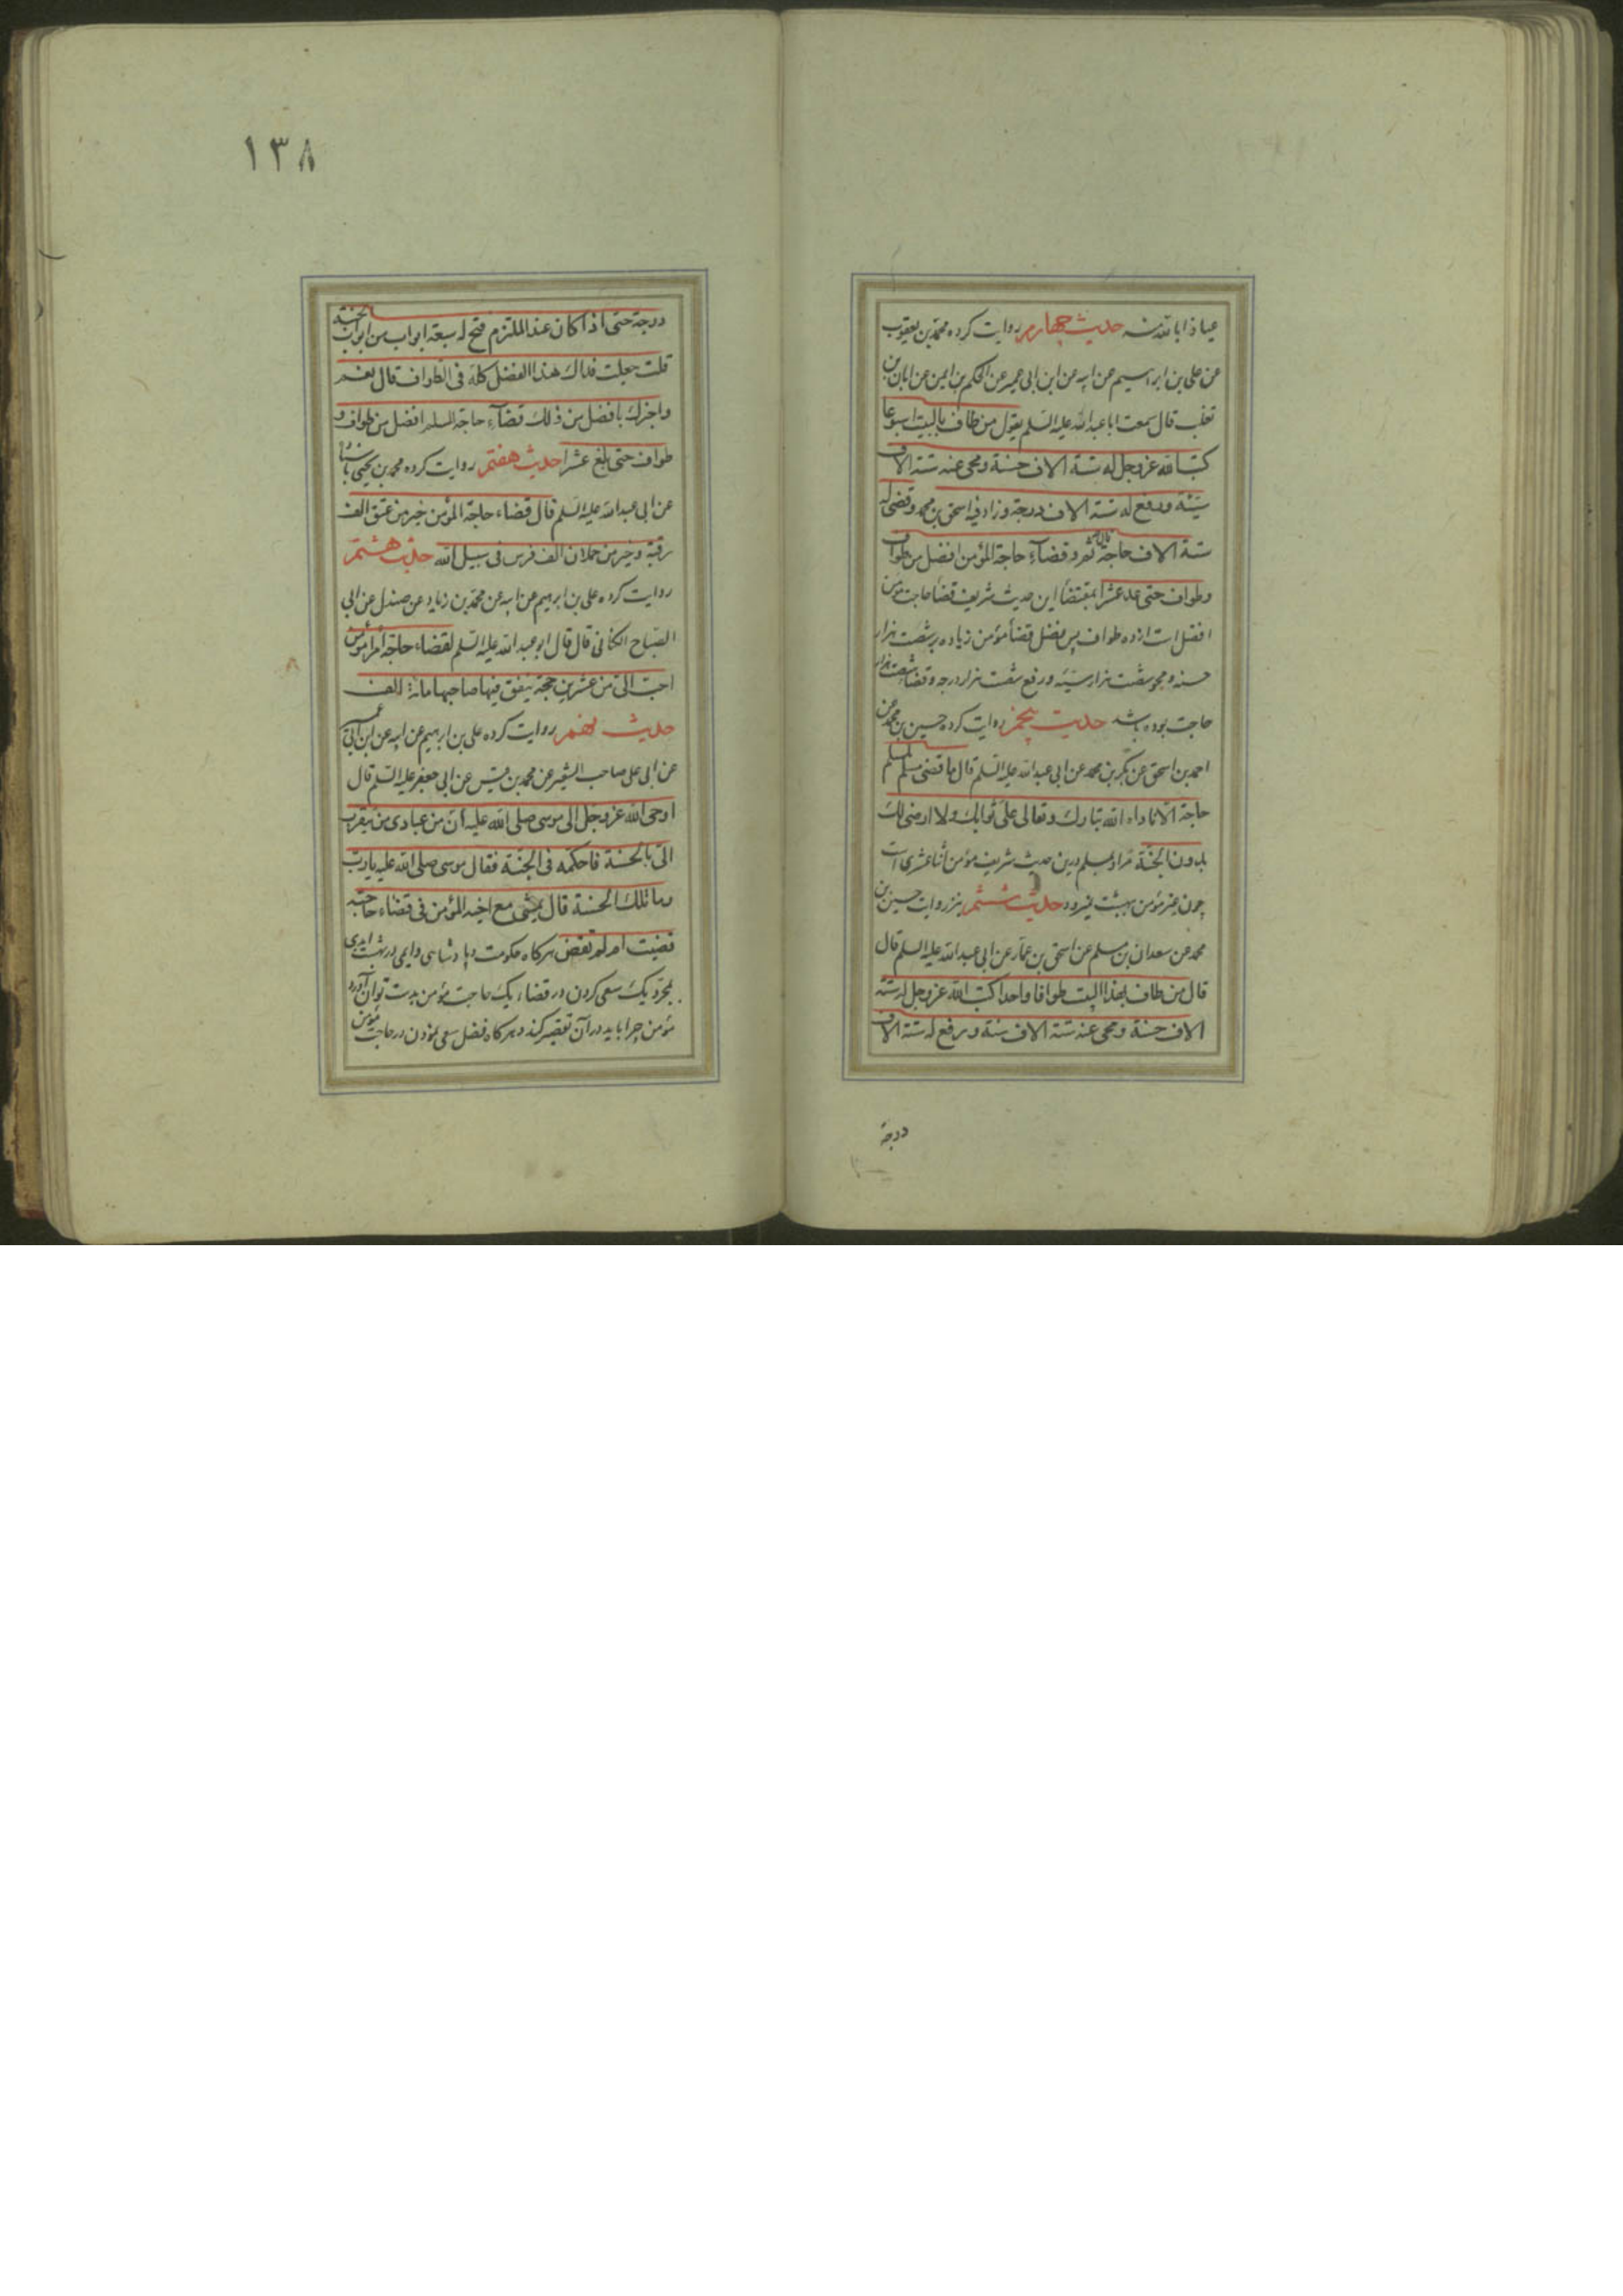 عیاذا بالله منه حدیث چهارم روایت کرده محمد بن یعقوب
عن علی بن ابراهیم عن ابیه عن ابن ابی عمیر عن الحکم بن ایمن عن ابان بن
تغلب قال سمعت ابا عبد الله علیه السلم یقول من طاف بالبیت اسبوعا
کتب الله عزوجل له ستة الاف حسنة و محی عنه ستة الاف
سیئة ورفع له ستة الاف درجة وزاد فیه اسحق بن محمد وقضی له
ستة الاف حاجة قال ثم و قضاء حاجة المؤمن افضل من طواف
وطواف حتی عد عشرا بمقتضا این حدیث شریف قضا حاجت مومن
افضل است از ده طواف پس فضل قضا مؤمن زیاده بر شصت هزار
حسنه و محو شصت هزار سیئه و رفع شصت هزار درجه و قضا شصت هزار
حاجت بوده باشد حدیث پنجم روایت کرده حسین بن محمد عن
احمد بن اسحق عن بکر بن محمد عن ابی عبد الله علیه السلم قال ما قضی مسلم لمسلم
حاجة الا ناداه الله تبارك وتعالی علی ثوابك ولا ارضی لك
بدون الجنة مراد بمسلم درین حدیث شریف مؤمن اثنا عشری است
چون غیر مؤمن ببهشت نمیرود حدیث ششم نیز روایت حسین بن
محمد عن سعدان بن مسلم عن اسحق بن عمار عن ابی عبد الله علیه السلم قال
قال من طاف بهذا البیت طوافا واحدا کتب الله عزوجل له ستة
الاف حسنة ومحی عنه ستة الاف سیئة ورفع له ستة الاف
درجة
۱۳۸
درجة حتی اذا کان عند الملتزم فتح له سبعة ابواب من ابواب الجنة
قلت جعلت فداك هذا الفضل کله فی الطواف قال نعم
واخبرك بافضل من ذلك قضاء حاجة المسلم افضل من طواف و
طواف حتی بلغ عشرا حدیث هفتم روایت کرده محمد بن یحیی باسناد
عن ابی عبد الله علیه السلم قال قضاء حاجة المؤمن خیر من عتق الف
رقبة وخیر من حملان الف فرس فی سبیل الله حدیث هشتم
روایت کرده علی بن ابرهیم عن ابیه عن محمد بن زیاد عن صندل عن ابی
الصباح الکنانی قال قال ابو عبد الله علیه السلم لقضاء حاجة امرء مؤمن
احب الی من عشرین حجة ینفق فیها صاحبها مائة الف
حدیث نهم روایت کرده علی بن ابرهیم عن ابیه عن ابن ابی عمیر
عن ابی علی صاحب الشعیر عن محمد بن قیس عن ابی جعفر علیه السلم قال
اوحی الله عزوجل الی موسی صلی الله علیه أن من عبادی من یتقرب
الی بالحسنة فاحکمه فی الجنة فقال موسی صلی الله علیه یارب
وما تلك الحسنة قال یمشی مع اخیه المؤمن فی قضاء حاجته
قضیت ام لم تقض هرکاه حکومت و پادشاهی دایمی در بهشت ابدی
بمجرد یک سعی کردن در قضاء یک حاجت مؤمن بدست توان آورد
مؤمن چرا باید در آن تقصیر کند و هرکاه فضل سعی نمودن در حاجت مؤمن